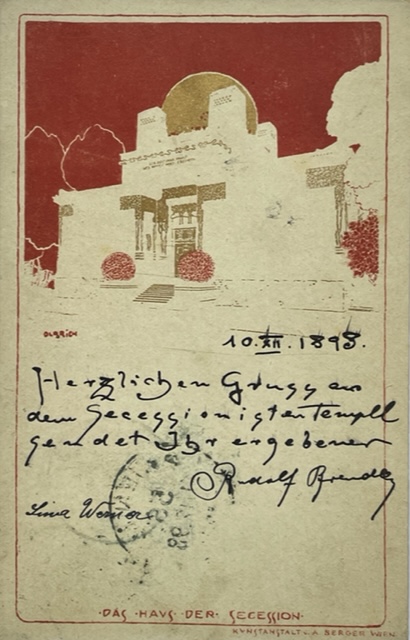 OLBRICH
10.XII.1898.
Herzlichen Gruss aus
dem Secessionistentempel
sendet Ihr ergebener
Rudolf
·DAS·HAUS·DER·SECESSION·
KUNSTANSTALT v. A. BERGER WIEN